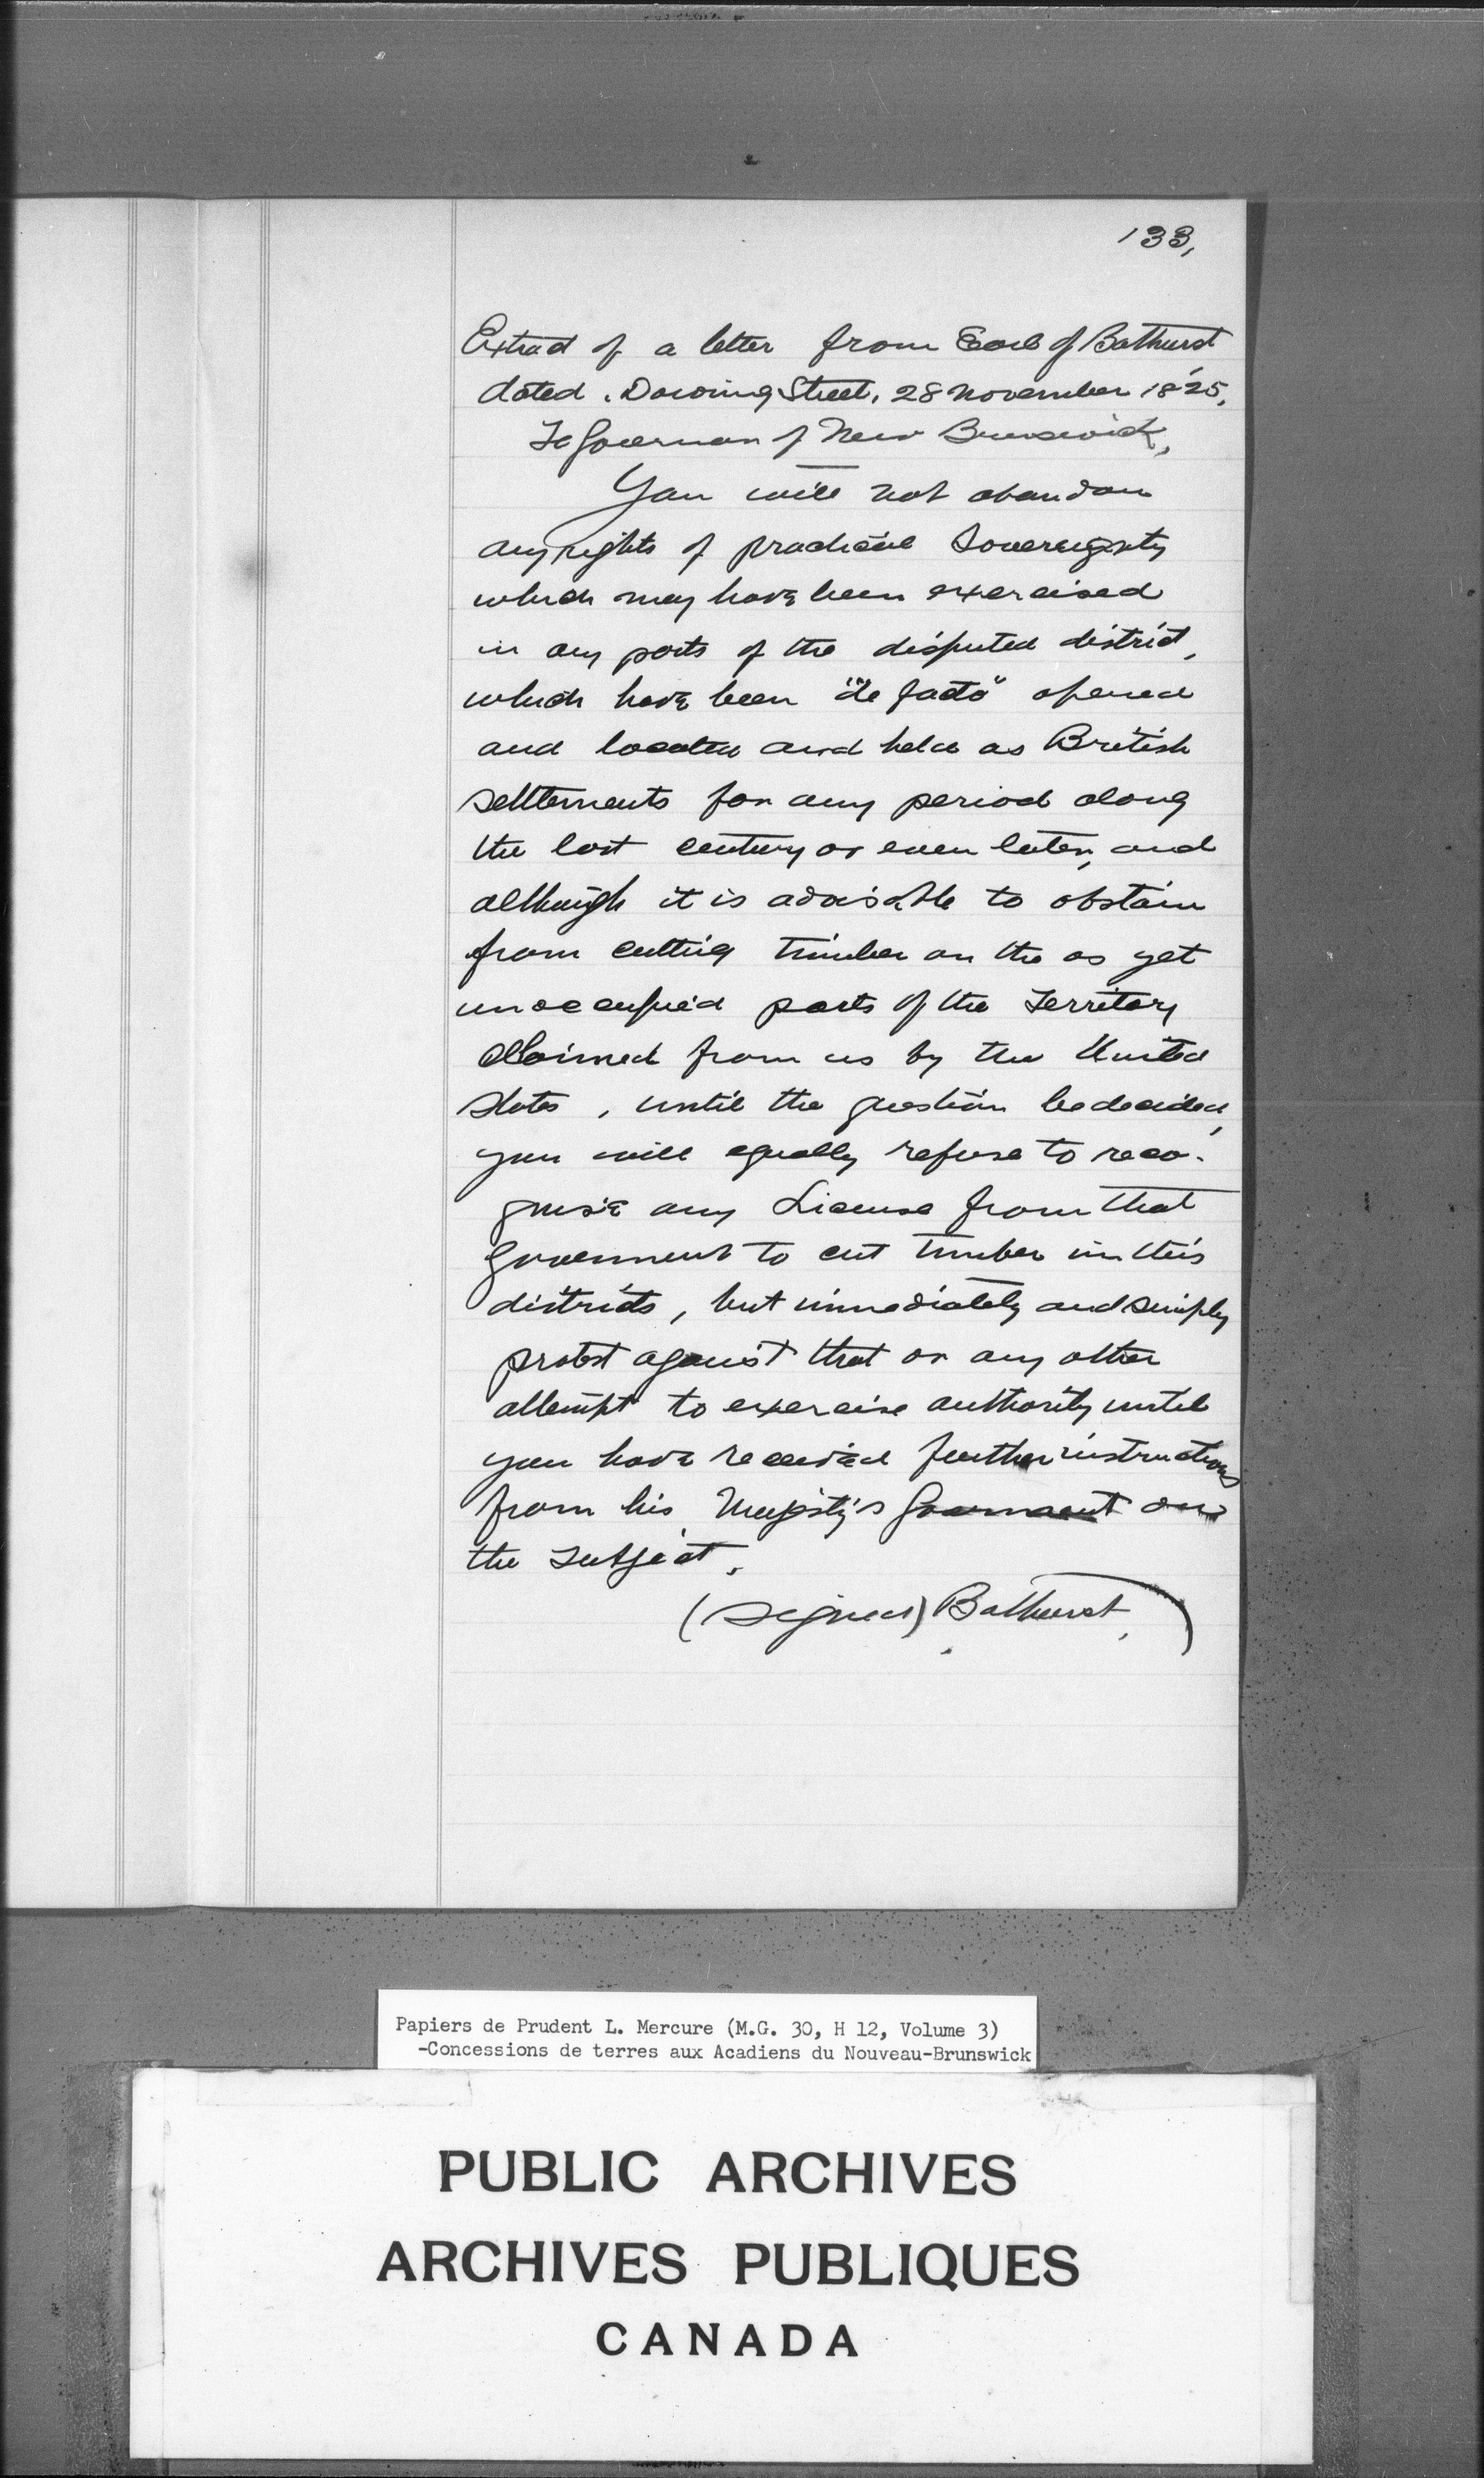 133,
Extract of a letter from Earl of Bathurst
dated, Downing Street, 28 November 1825,
To Governor of New Brunswick,
You will not abandon
any rights of practical Sovereignty
which may have been exercised
in any parts of the disputed district,
which have been "de facto" opened
and located and held as British
settlements for any period along
the last century or even later, and
although it is advisable to abstain
from cutting timber on the as yet
unoccupied parts of the Territory
claimed from us by the United
States, until the question be decided,
you will equally refuse to reco-
gnise any License from that
Government to cut timber in this
districts, but immediately and simply
protest against that or any other
attempt to exercise authority until
you have received further instructions
from his Majesty's Government on
the subject.
(signed) Bathurst,)
Papiers de Prudent L. Mercure (M.G. 30, H 12, Volume 3)
-Concessions de terres aux Acadiens du Nouveau-Brunswick
PUBLIC ARCHIVES
ARCHIVES PUBLIQUES
CANADA